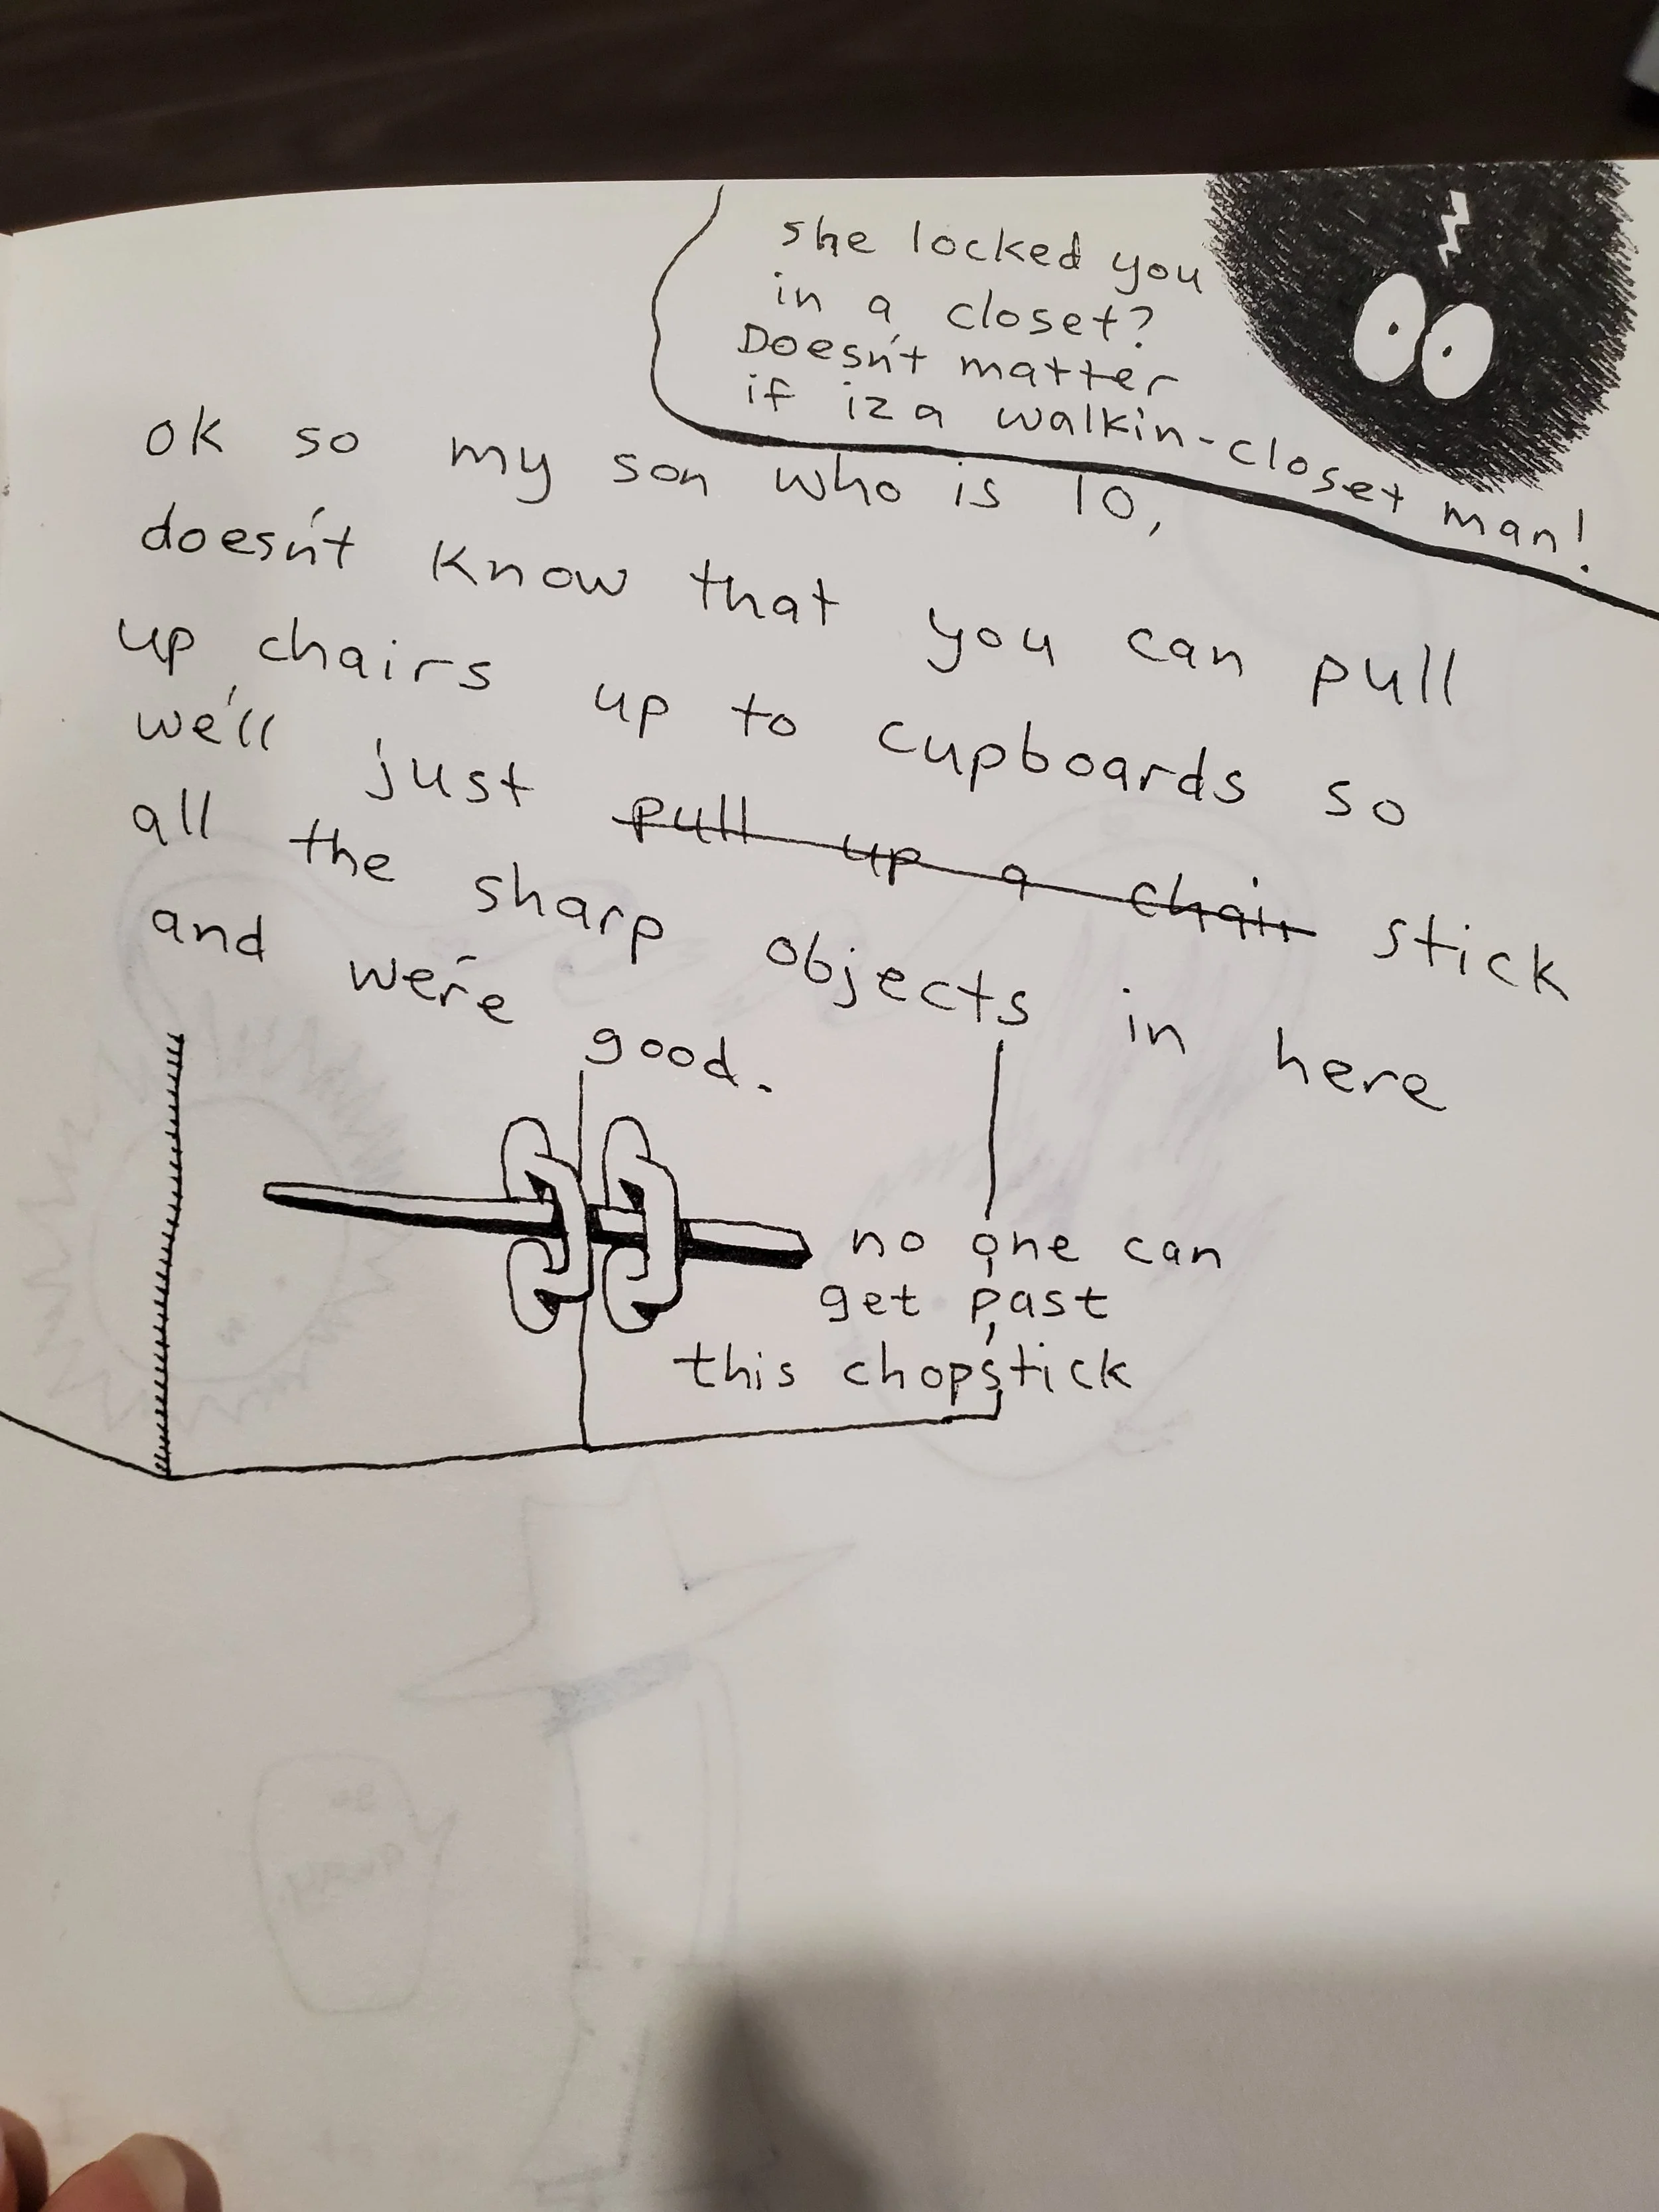 she locked you
in a closet?
Doesn't matter
if iz a walkin-closet man!
ok so my son who is 10,
doesn't know that you can pull
up chairs up to cupboards so
we'll just pull up a chair stick
all the sharp objects in here
and we're good.
no one can
get past
this chopstick